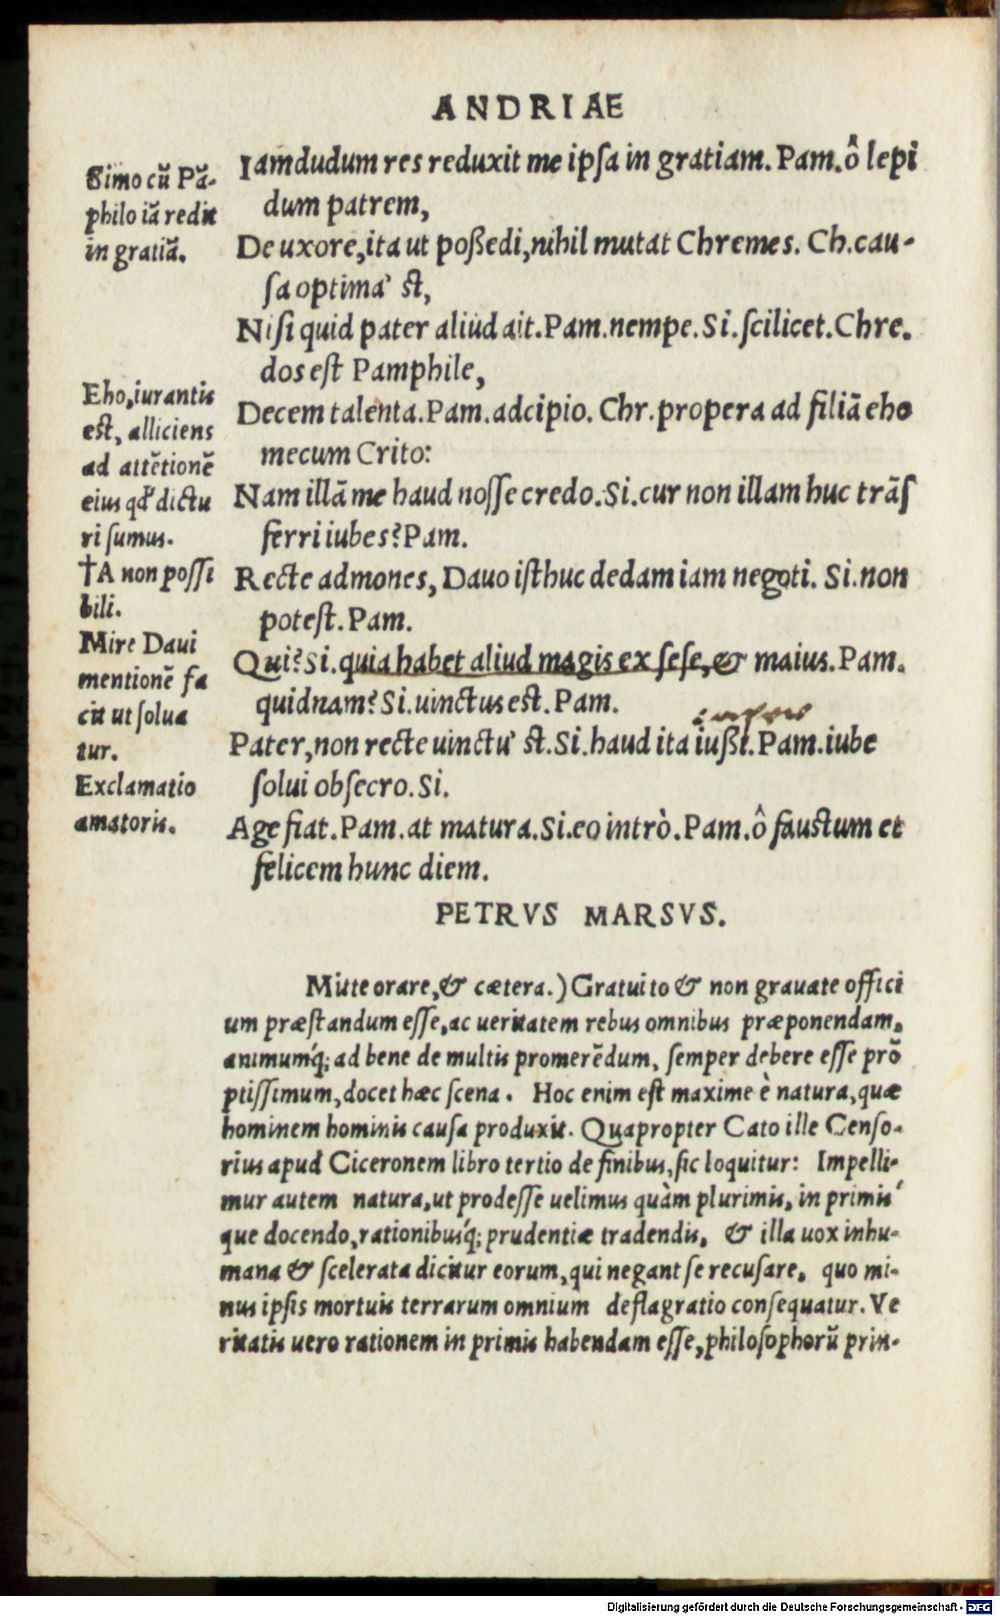 ANDRIAE
Simo cũ Pã-
philo iã redit
in gratiã.
Iamdudum res reduxit me ipſa in gratiam. Pam. ô lepi
dum patrem,
De uxore, ita ut poßedi, nihil mutat Chremes. Ch. cau-
ſa optima' ſt,
Niſi quid pater aliud ait. Pam. nempe. Si. ſcilicet. Chre.
dos eſt Pamphile,
Eho, iurantis
eſt, alliciens
ad attẽtionẽ
eius qď dictu
ri ſumus.
†A non poſſi
bili.
Mire Daui
mentionẽ fa
cit ut ſolua
tur.
Exclamatio
amatoris.
Decem talenta. Pam. adcipio. Chr. propera ad filiã eho
mecum Crito:
Nam illã me haud noſſe credo. Si. cur non illam huc trãſ
ferri iubes? Pam.
Recte admones, Dauo iſthuc dedam iam negoti. Si. non
poteſt. Pam.
Qui? Si. quia habet aliud magis ex ſeſe, & maius. Pam.
quidnam? Si. uinctus eſt. Pam.
Pater, non recte uinctu' ſt. Si. haud ita iußi. Pam. iube
ſolui obſecro. Si.
Age fiat. Pam. at matura. Si. eo intrò. Pam. ô fauſtum et
felicem hunc diem.
PETRVS MARSVS.
Mitte orare, & cætera.) Gratuito & non grauate offici
um præſtandum eſſe, ac ueritatem rebus omnibus præponendam,
animumq́; ad bene de multis promerẽdum, ſemper debere eſſe prõ
ptiſſimum, docet hæc ſcena. Hoc enim eſt maxime è natura, quæ
hominem hominis cauſa produxit. Quapropter Cato ille Cenſo-
rius apud Ciceronem libro tertio de finibus, ſic loquitur: Impelli-
mur autem natura, ut prodeſſe uelimus quàm plurimis, in primis'
que docendo, rationibusq́; prudentiæ tradendis, & illa uox inhu-
mana & ſcelerata dicitur eorum, qui negant ſe recuſare, quo mi-
nus ipſis mortuis terrarum omnium deflagratio conſequatur. Ve
ritatis uero rationem in primis habendam eſſe, philoſophorũ prin-
Digitalisierung gefördert durch die Deutsche Forschungsgemeinschaft - DFG